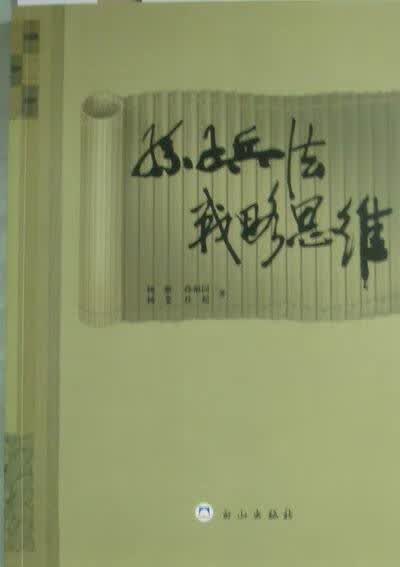 孙子兵法
战略思维
著
白山出版社